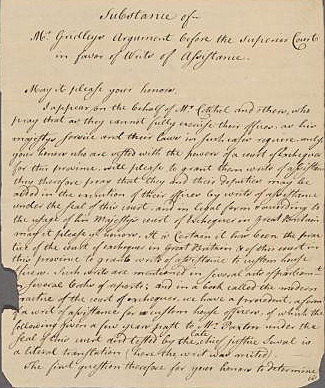 Substance of
Mr. Gridleys Argument before the Superior Court
in favor of Writs of Assistance.
May it please your honors,
I appear on the behalf of Mr. and others, who
pray that as they cannot fully exercise their offices, as his
majestys service and their laws in such cases require, unless
your honors who are vested with the power of a court of exchequer
for this province will please to grant them writs of assistance
they therefore pray that they and their deputies may be
aided in the execution of their offices by writs of assistance
under the seal of this court and in legal form & according to
the usage of his Majestys court of exchequer in great Britain.
May it please yr honors, it is certain it has been the prac-
tice of the court of exchequer in Great Britain & of this court in
this province to grant writs of assistance to custom house
officers. Such writs are mentioned in several acts of parliament
in several books of reports; and in a book called the modern
practice of the court of exchequer, we have a precedent, a form
of a writ of assistance for custom house officers, of which the
following given a few years past to Mr. Paxton under the
seal of this court and tested by the late chief justice Sewal is
a literal translation (here the writ was recited)
The first question therefore for your honors to determine
is